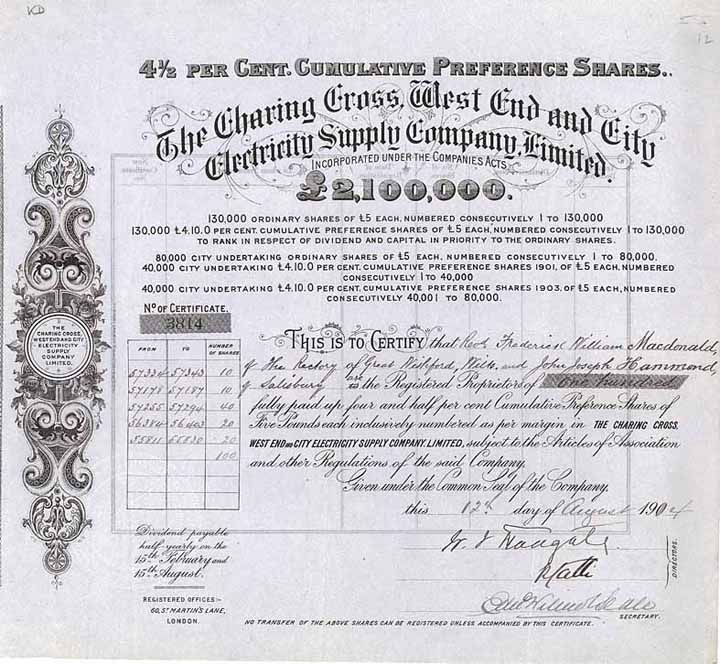 KD
12
4½ PER CENT. CUMULATIVE PREFERENCE SHARES.
The Charing Cross, West End and City
Electricity Supply Company, Limited.
INCORPORATED UNDER THE COMPANIES ACTS.
£2,100,000.
130,000 ORDINARY SHARES OF £5 EACH, NUMBERED CONSECUTIVELY 1 TO 130,000
130,000 £4.10.0 PER CENT. CUMULATIVE PREFERENCE SHARES OF £5 EACH, NUMBERED CONSECUTIVELY 1 TO 130,000
TO RANK IN RESPECT OF DIVIDEND AND CAPITAL IN PRIORITY TO THE ORDINARY SHARES.
80,000 CITY UNDERTAKING ORDINARY SHARES OF £5 EACH, NUMBERED CONSECUTIVELY 1 TO 80,000.
40,000 CITY UNDERTAKING £4.10.0 PER CENT. CUMULATIVE PREFERENCE SHARES 1901, OF £5 EACH, NUMBERED
CONSECUTIVELY 1 TO 40,000
40,000 CITY UNDERTAKING £4.10.0 PER CENT. CUMULATIVE PREFERENCE SHARES 1903, OF £5 EACH, NUMBERED
CONSECUTIVELY 40,001 TO 80,000.
THE
CHARING CROSS,
WEST END AND CITY
ELECTRICITY
SUPPLY
COMPANY
LIMITED.
No OF CERTIFICATE.
3814
FROM TO NUMBER OF SHARES
57334 57343 10
57178 57187 10
57255 57294 40
56384 56403 20
20
100
THIS IS TO CERTIFY that Revd. Frederick William Macdonald,
of The Rectory of Great Wishford, Wilts, and John Joseph Hammond,
of Salisbury are the Registered Proprietors of One hundred
fully paid up four and half per cent Cumulative Preference Shares of
Five Pounds each inclusively numbered as per margin in THE CHARING CROSS,
WEST END AND CITY ELECTRICITY SUPPLY COMPANY LIMITED, subject to the Articles of Association
and other Regulations of the said Company.
Given under the Common Seal of the Company.
this 12th day of August 1904
Dividend payable
half-yearly on the
15th February and
15th August.
DIRECTORS.
SECRETARY.
REGISTERED OFFICES:-
60, ST MARTIN'S LANE,
LONDON.
NO TRANSFER OF THE ABOVE SHARES CAN BE REGISTERED UNLESS ACCOMPANIED BY THIS CERTIFICATE.